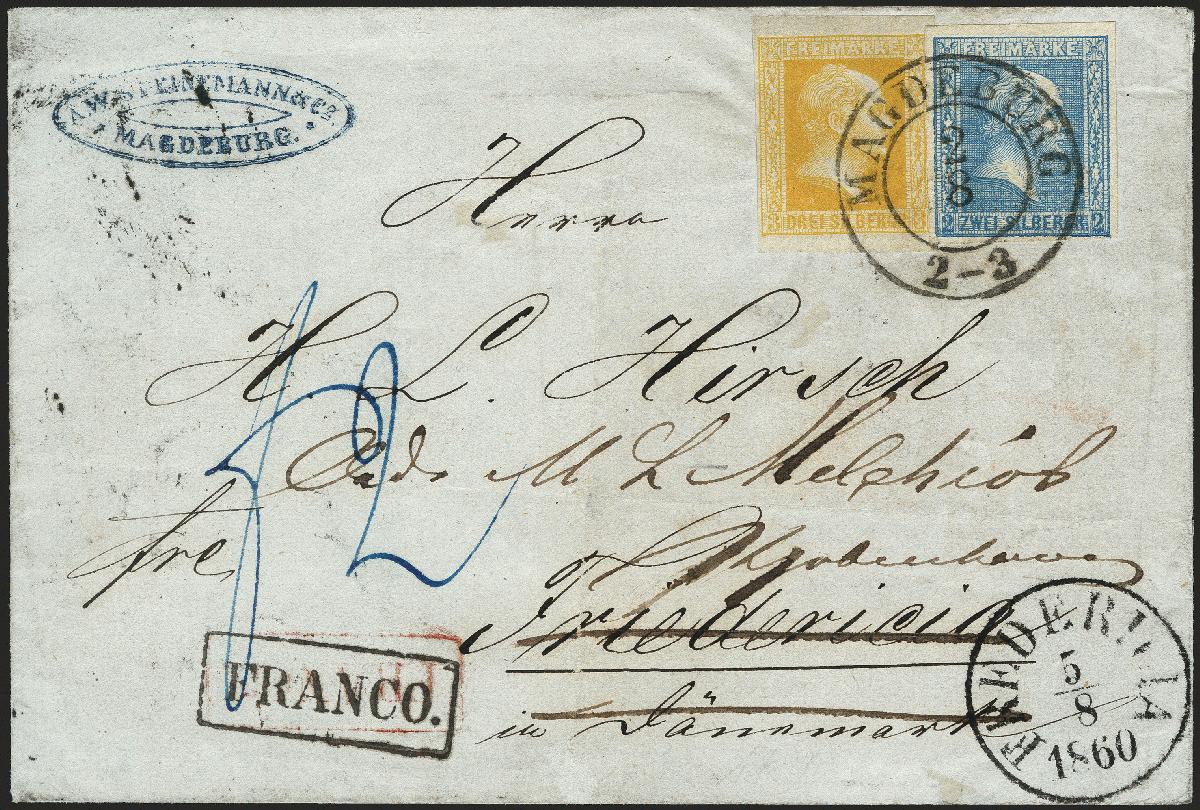 A.W. STEINEMANN & Co.
MAGDEBURG.
FREIMARKE
3 DREI SILBERGR. 3
FREIMARKE
2 ZWEI SILBERGR. 2
MAGDEBURG
2
8
2-3
Herrn
H. L. Hirsch
M L Melchiob
Kjobenhavn
frc
Friedericia
in Dänemark
FRANCO.
FREDERICIA
5
8
1860